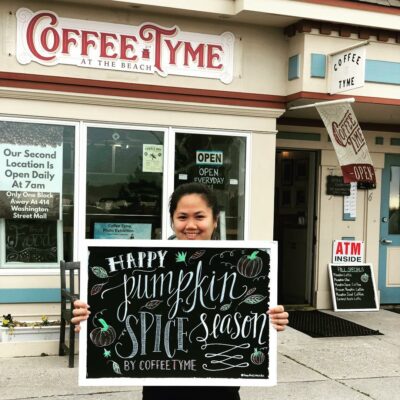 COFFEE TYME
AT THE BEACH
COFFEE
TYME
Our Second
Location is
Open Daily
At 7am
Only One Block
Away At 414
Washington
Street Mall
OPEN
OPEN
EVERYDAY
COFFEE
TYME
OPEN
ATM
INSIDE
FALL SPECIALS
HAPPY
pumpkin
SPICE season
BY COFFEETYME